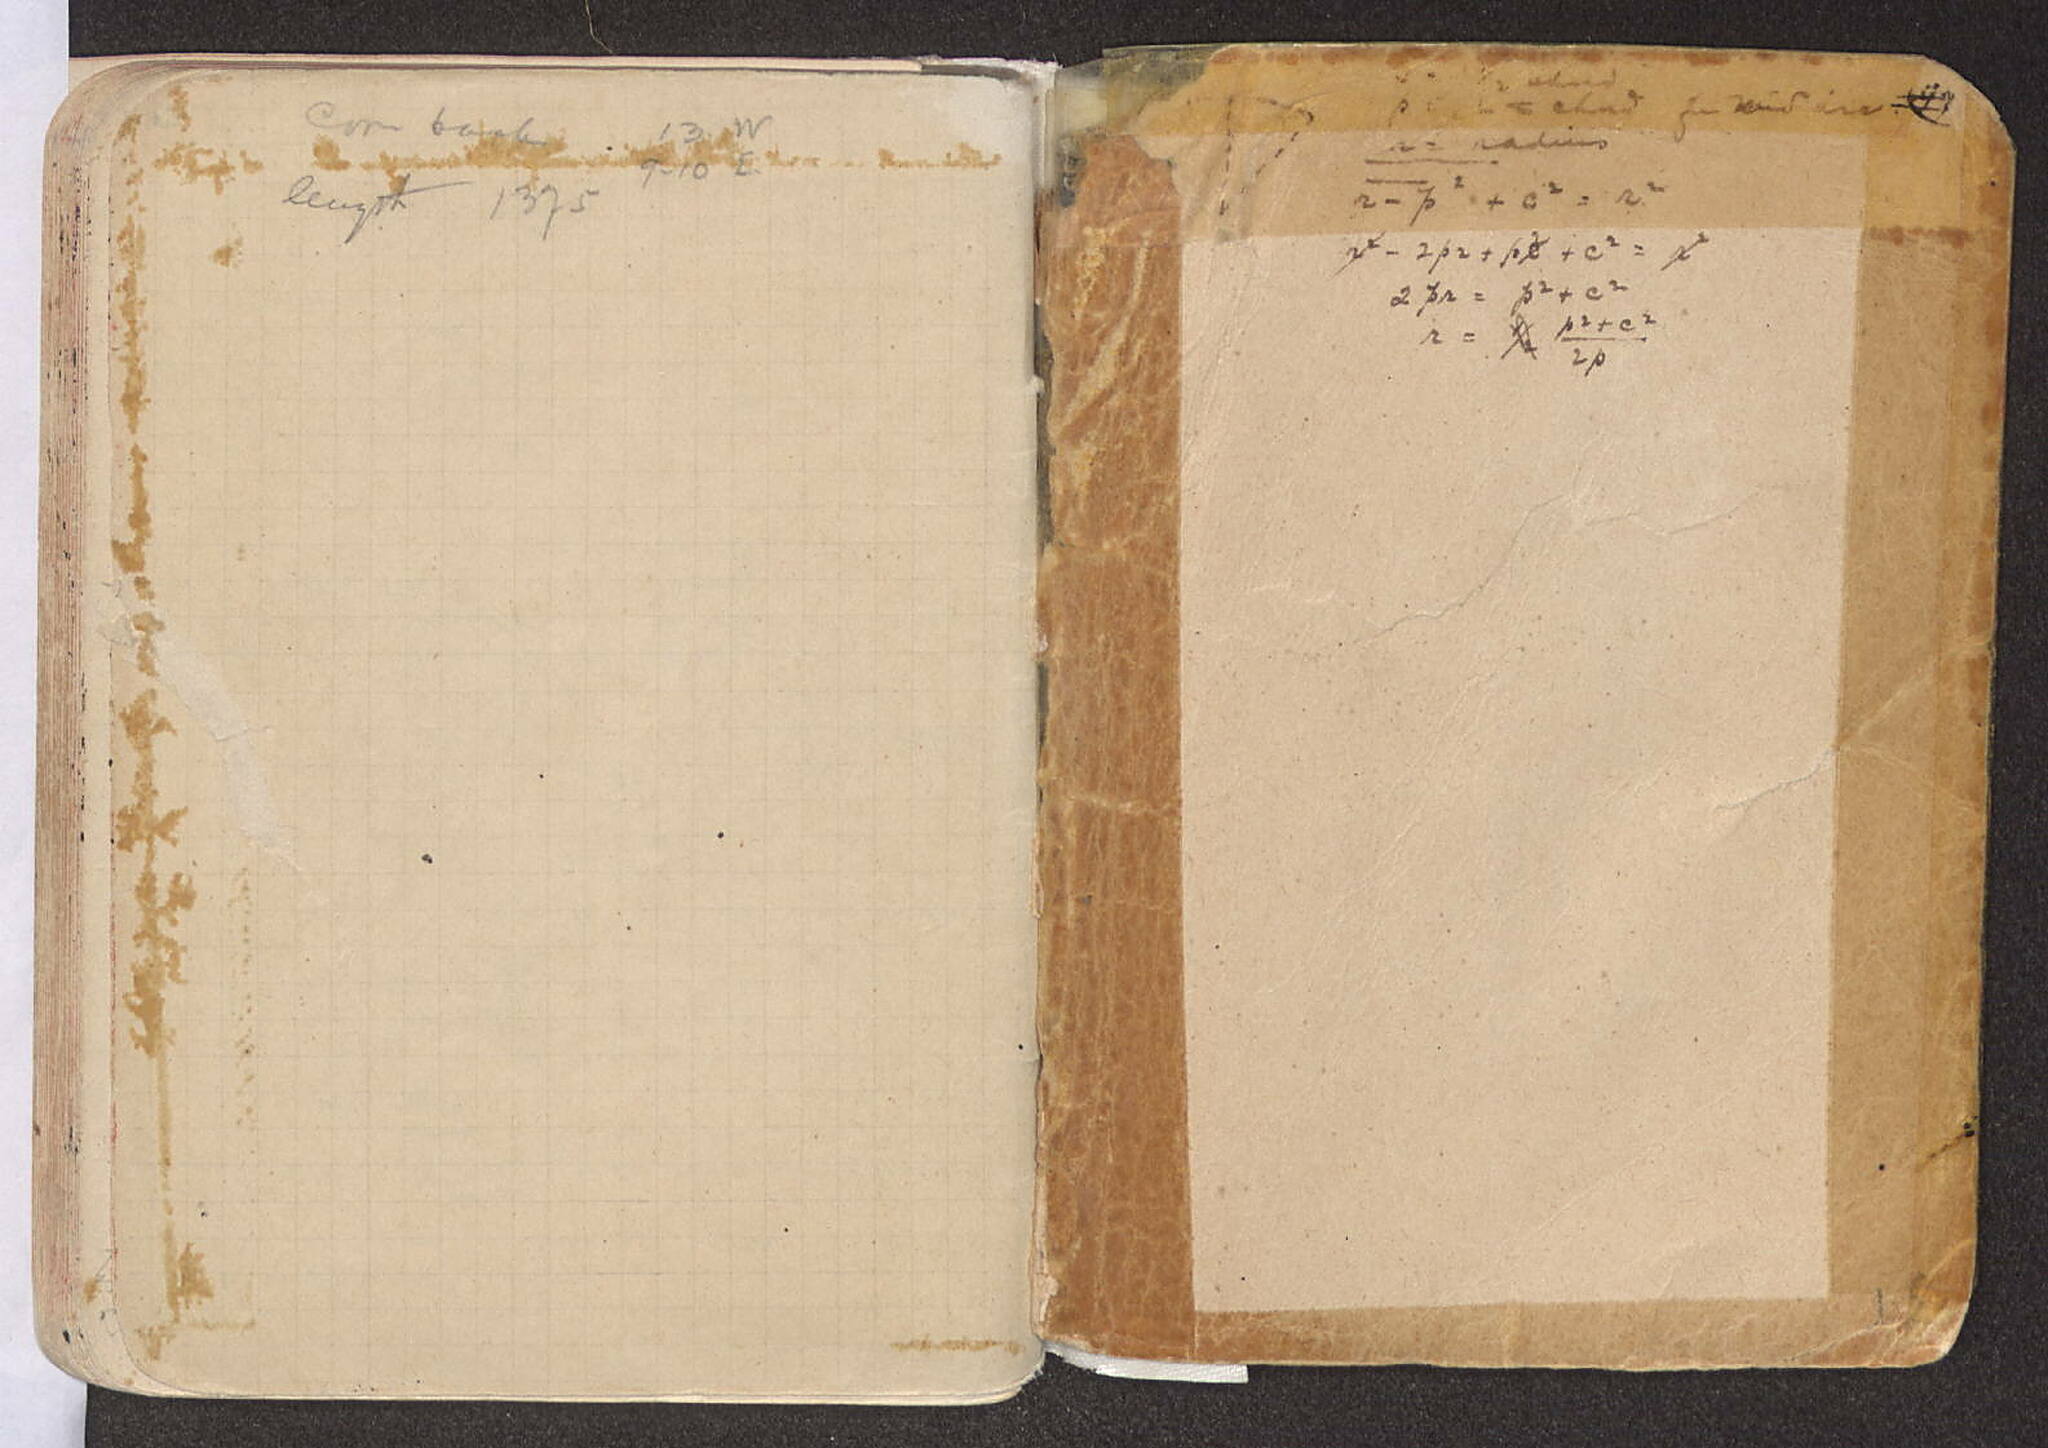 Corn 13 W
9-10 E.
length 1375
½ chord
p = chord mid arc
r = radius
r - p² + c² = r²
r² - 2pr + p² + c² = r²
2pr = p² + c²
r = p² + c²
2p